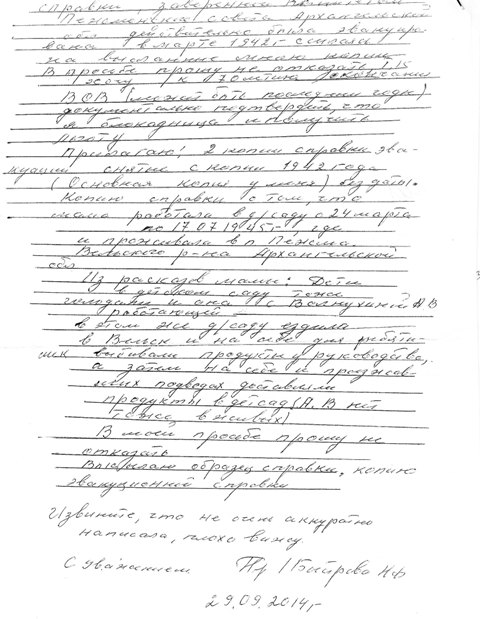 справки, заверенной
Пежменский совета Архангельской
обл действительно была эвакуиро-
вана в марте 1942г
на высланных мною копии
В просьбе прошу не отказать, т.к
хочу к 70летию окончания
ВОВ (может быть последний годы)
документально подтвердить, что
я блокадница и получить
льготу
Прилагаю: 2 копии справки эва-
куации снятые с копии 1942 года
(Основная копия у меня) без даты.
Копию справки о том, что
мама работала в д/саду с 24 марта
по 17.07.1945г, где
и проживала в п Пежма.
Вельского р-на Архангельской
обл
Из рассказов мамы: Дети
в детском саду тоже
голодали и она с А В
работающей
в этом же д/саду ездила
в Вельск и на себе для ребяти-
шек выбивали продукты у руководства,
а затем на себе и проезжав-
ших подводах доставляли
продукты в детсад (А.В нет
тоже в живых)
В моей просьбе прошу не
отказать
Высылаю образец справки, копию
эвакуационной справки
Извините, что не очень аккуратно
написала, плохо вижу.
С уважением
29.09.2014г